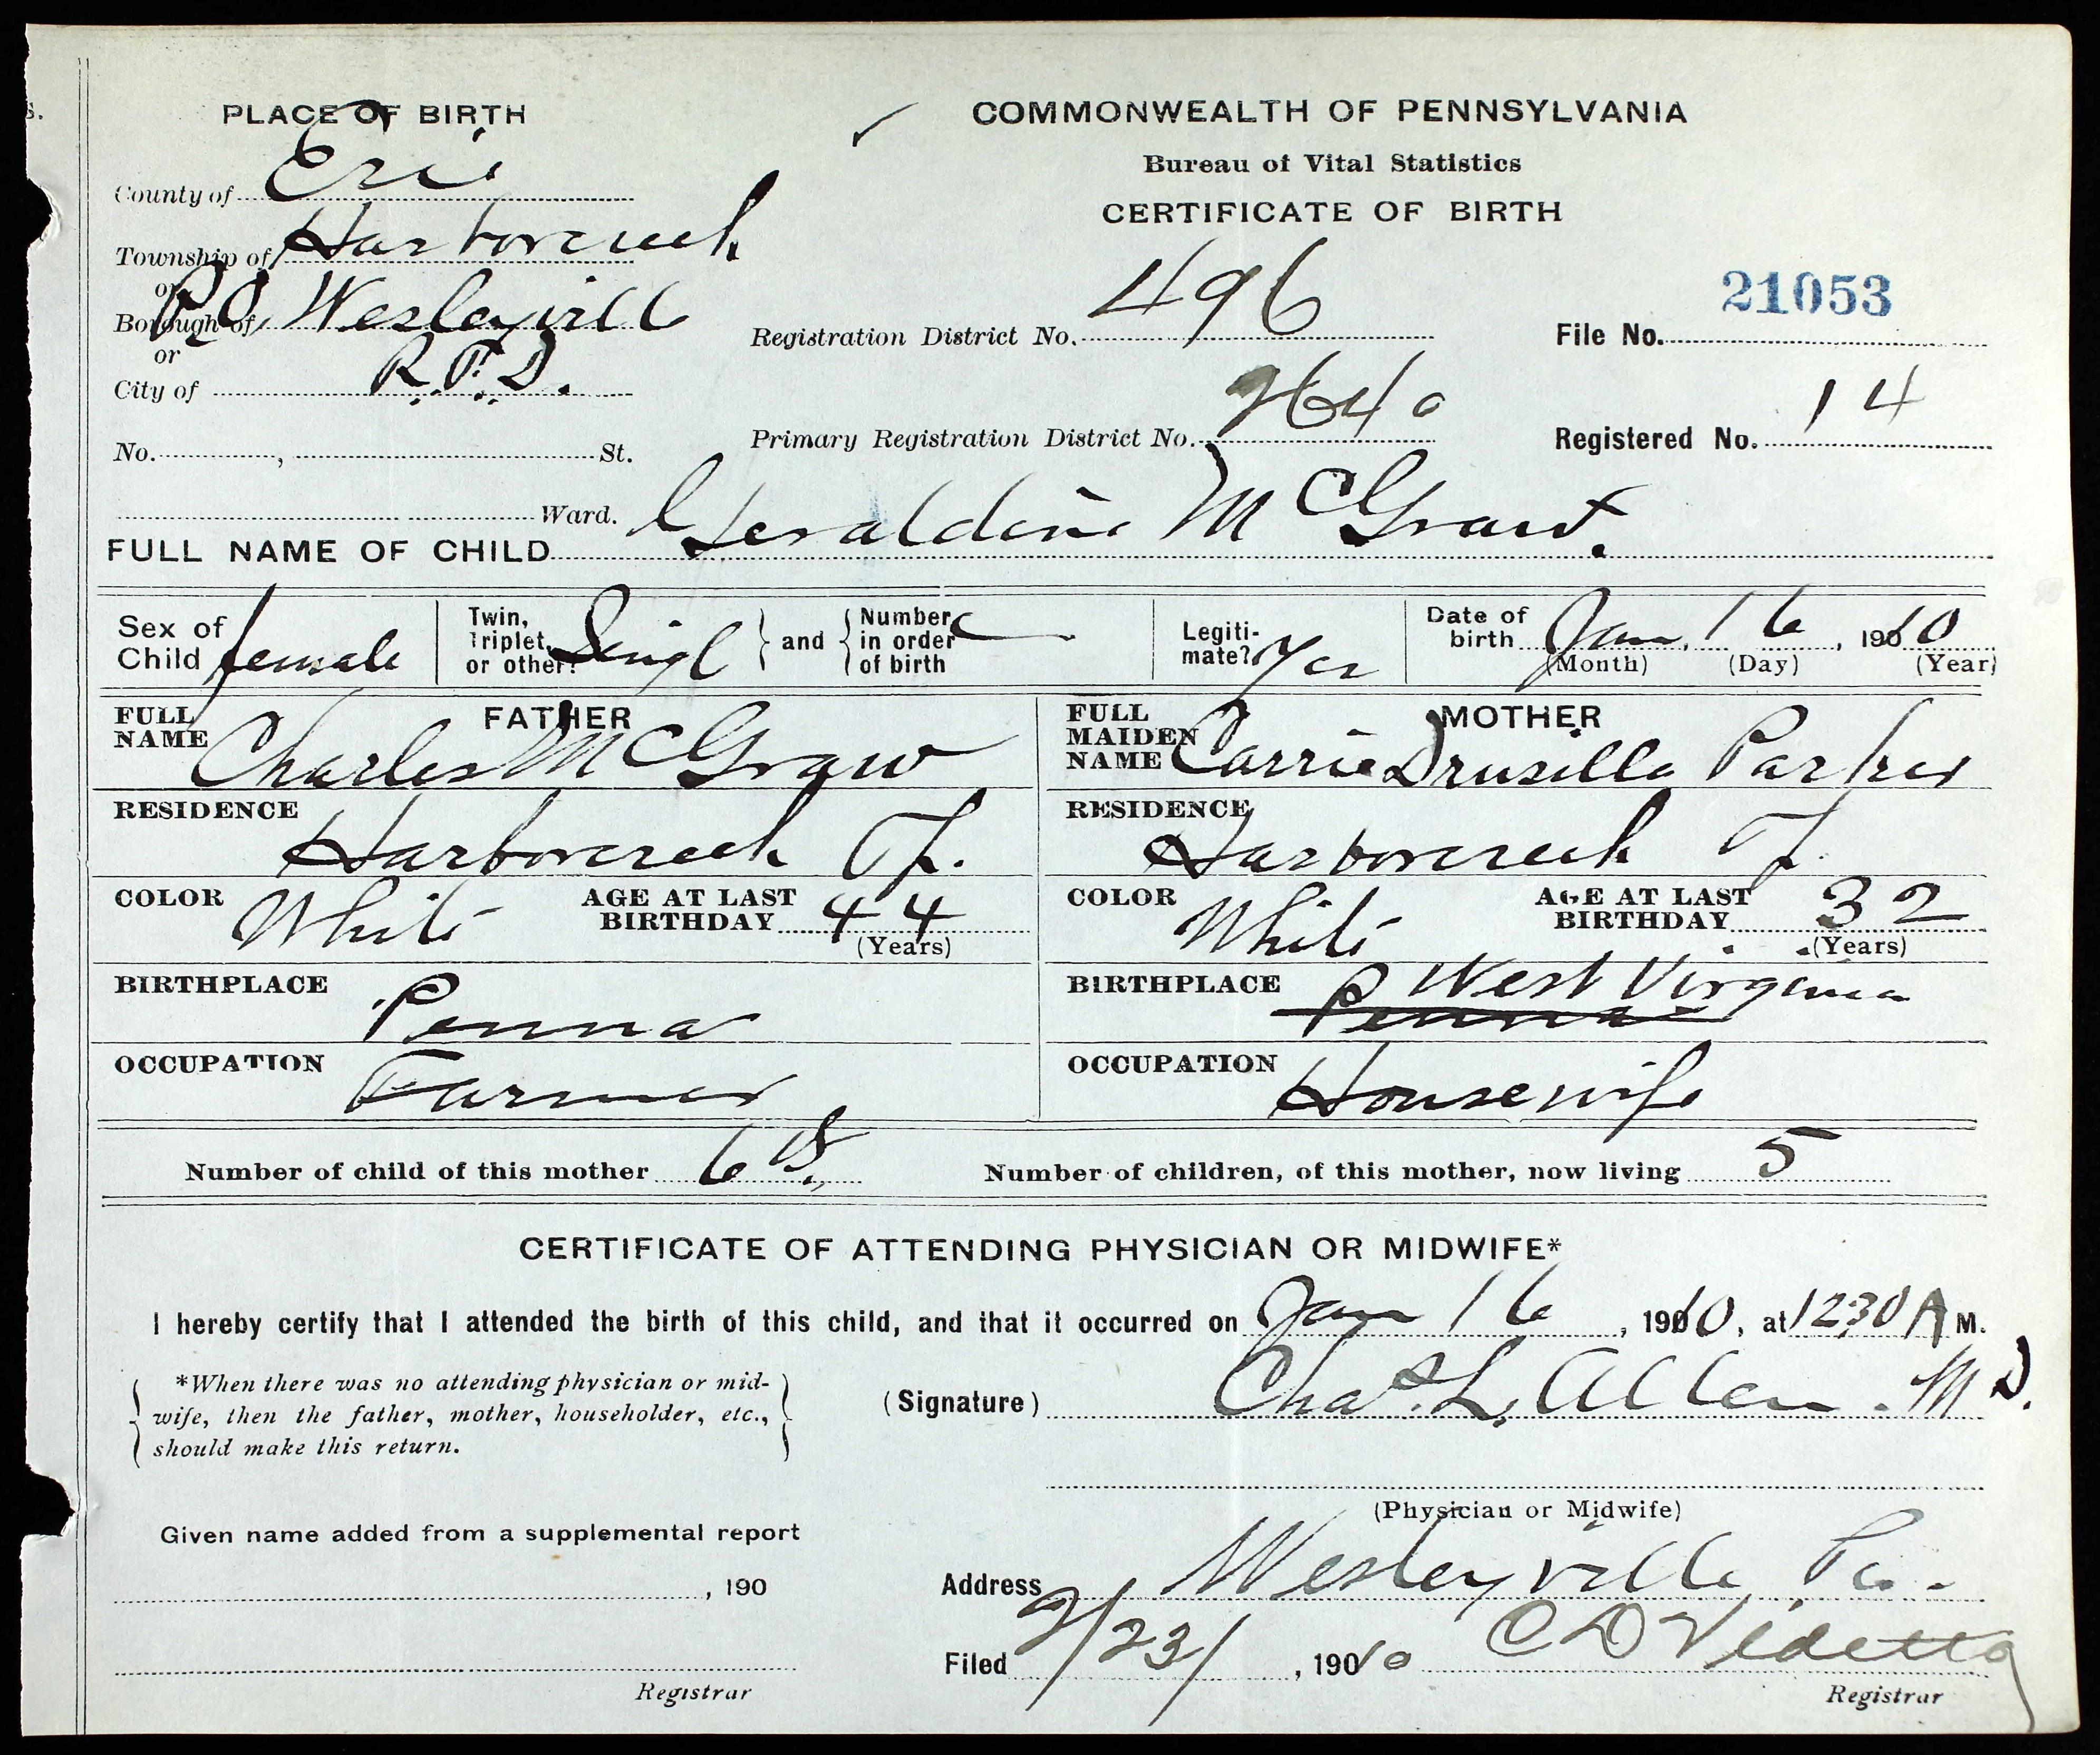 s.
PLACE OF BIRTH
County of Erie
Township of Harborcreek
or
Borough of P.O. Wesleyville
or
City of R.F.D.
No. , St.
Ward.
COMMONWEALTH OF PENNSYLVANIA
Bureau of Vital Statistics
CERTIFICATE OF BIRTH
Registration District No. 496
File No. 21053
Primary Registration District No. 2640
Registered No. 14
FULL NAME OF CHILD Geraldine McGraw.
Sex of Child female
Twin, Triplet, or other? Singl } and { Number in order of birth
Legitimate? Yes
Date of birth Jan. 16, 1910
(Month) (Day) (Year)
FATHER
FULL NAME Charles McGraw
RESIDENCE Harborcreek Tp.
COLOR White AGE AT LAST BIRTHDAY 44
(Years)
BIRTHPLACE Penna
OCCUPATION Farmer
MOTHER
FULL MAIDEN NAME Carrie Drusilla Parker
RESIDENCE Harborcreek T.
COLOR White AGE AT LAST BIRTHDAY 32
(Years)
BIRTHPLACE West Virginia
Penna
OCCUPATION Housewife
Number of child of this mother 6th
Number of children, of this mother, now living 5
CERTIFICATE OF ATTENDING PHYSICIAN OR MIDWIFE*
I hereby certify that I attended the birth of this child, and that it occurred on Jan 16, 1910, at 1230 A M.
*When there was no attending physician or mid-
wife, then the father, mother, householder, etc.,
should make this return.
(Signature) Chas. L. Allen. M D.
(Physician or Midwife)
Given name added from a supplemental report
, 190
Registrar
Address Wesleyville Pa.
Filed 2/23/, 1910 C D Videtto
Registrar